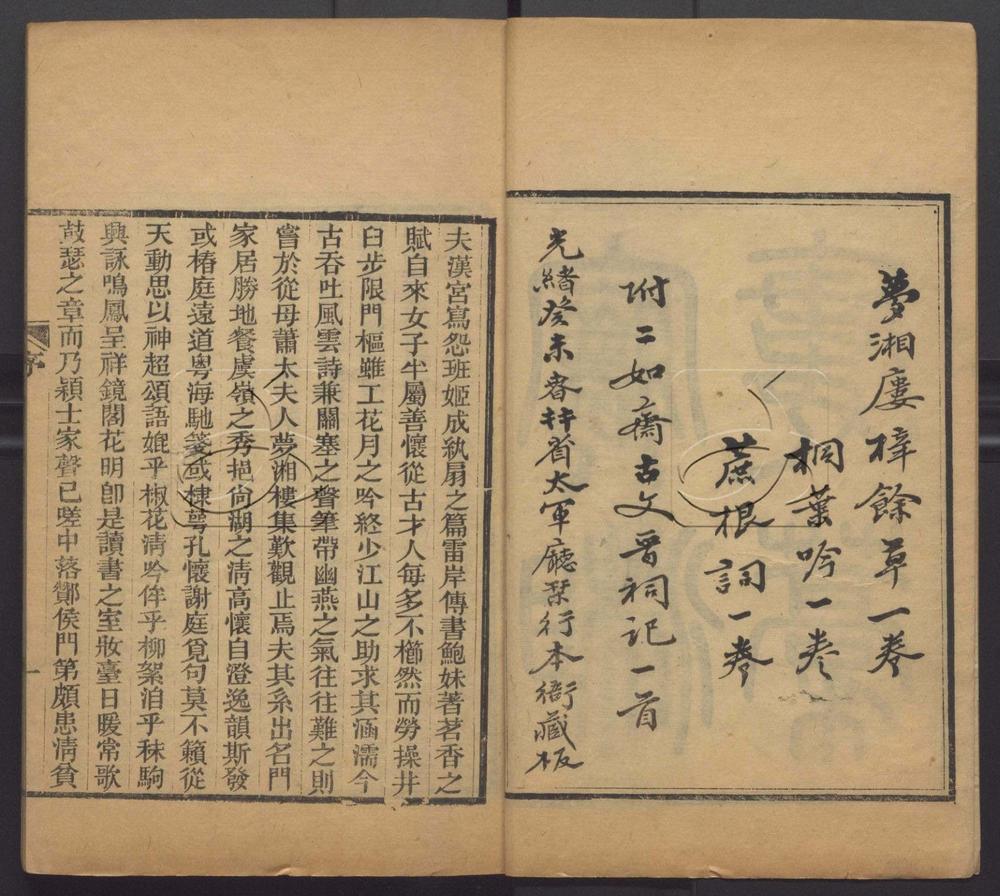 夢湘廔梓餘草一卷
桐葉吟一卷
蔗根詞一卷
附二如齋古文晉祠記一首
光緒癸未春幷省大軍廳栞行本衙藏板
夫漢宮寫怨班姬成紈扇之篇雷岸傳書鮑妹著茗香之
賦自來女子半屬善懷從古才人每多不櫛然而勞操井
臼步限門樞雖工花月之吟終少江山之助求其涵濡今
古吞吐風雲詩兼關塞之聲筆帶幽燕之氣往往難之則
嘗於從母蕭太夫人夢湘樓集歎觀止焉夫其系出名門
家居勝地餐虞嶺之秀挹尙湖之淸高懷自澄逸韻斯發
或椿庭遠道粵海馳箋或棣萼孔懷謝庭覓句莫不籟從
天動思以神超頌語媲乎椒花淸吟侔乎柳絮洎乎秣駒
興詠鳴鳳呈祥鏡閣花明卽是讀書之室妝臺日暖常歌
鼓瑟之章而乃穎士家聲已嗟中落鄼侯門第頗患淸貧
序
一